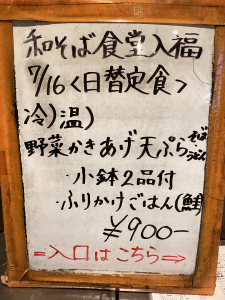 和そば食堂入福
7/16<日替定食>
冷)温)
野菜かきあげ天ぷらそば
うどん
・小鉢2品付
・ふりかけごはん(鮭)
¥900-
=入口はこちら⇒